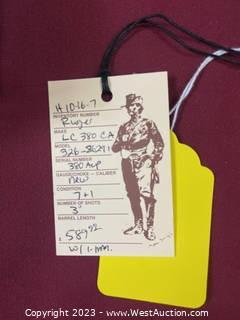 H 10-16-7
INVENTORY NUMBER
Ruger
MAKE
LC 380 CA
MODEL
326-86291
SERIAL NUMBER
380 ACP
GAUGE/CHOKE - CALIBER
New
CONDITION
7+1
NUMBER OF SHOTS
3"
BARREL LENGTH
$ 589.92
W/ 1-MM.
Copyright 2023 - www.WestAuction.com